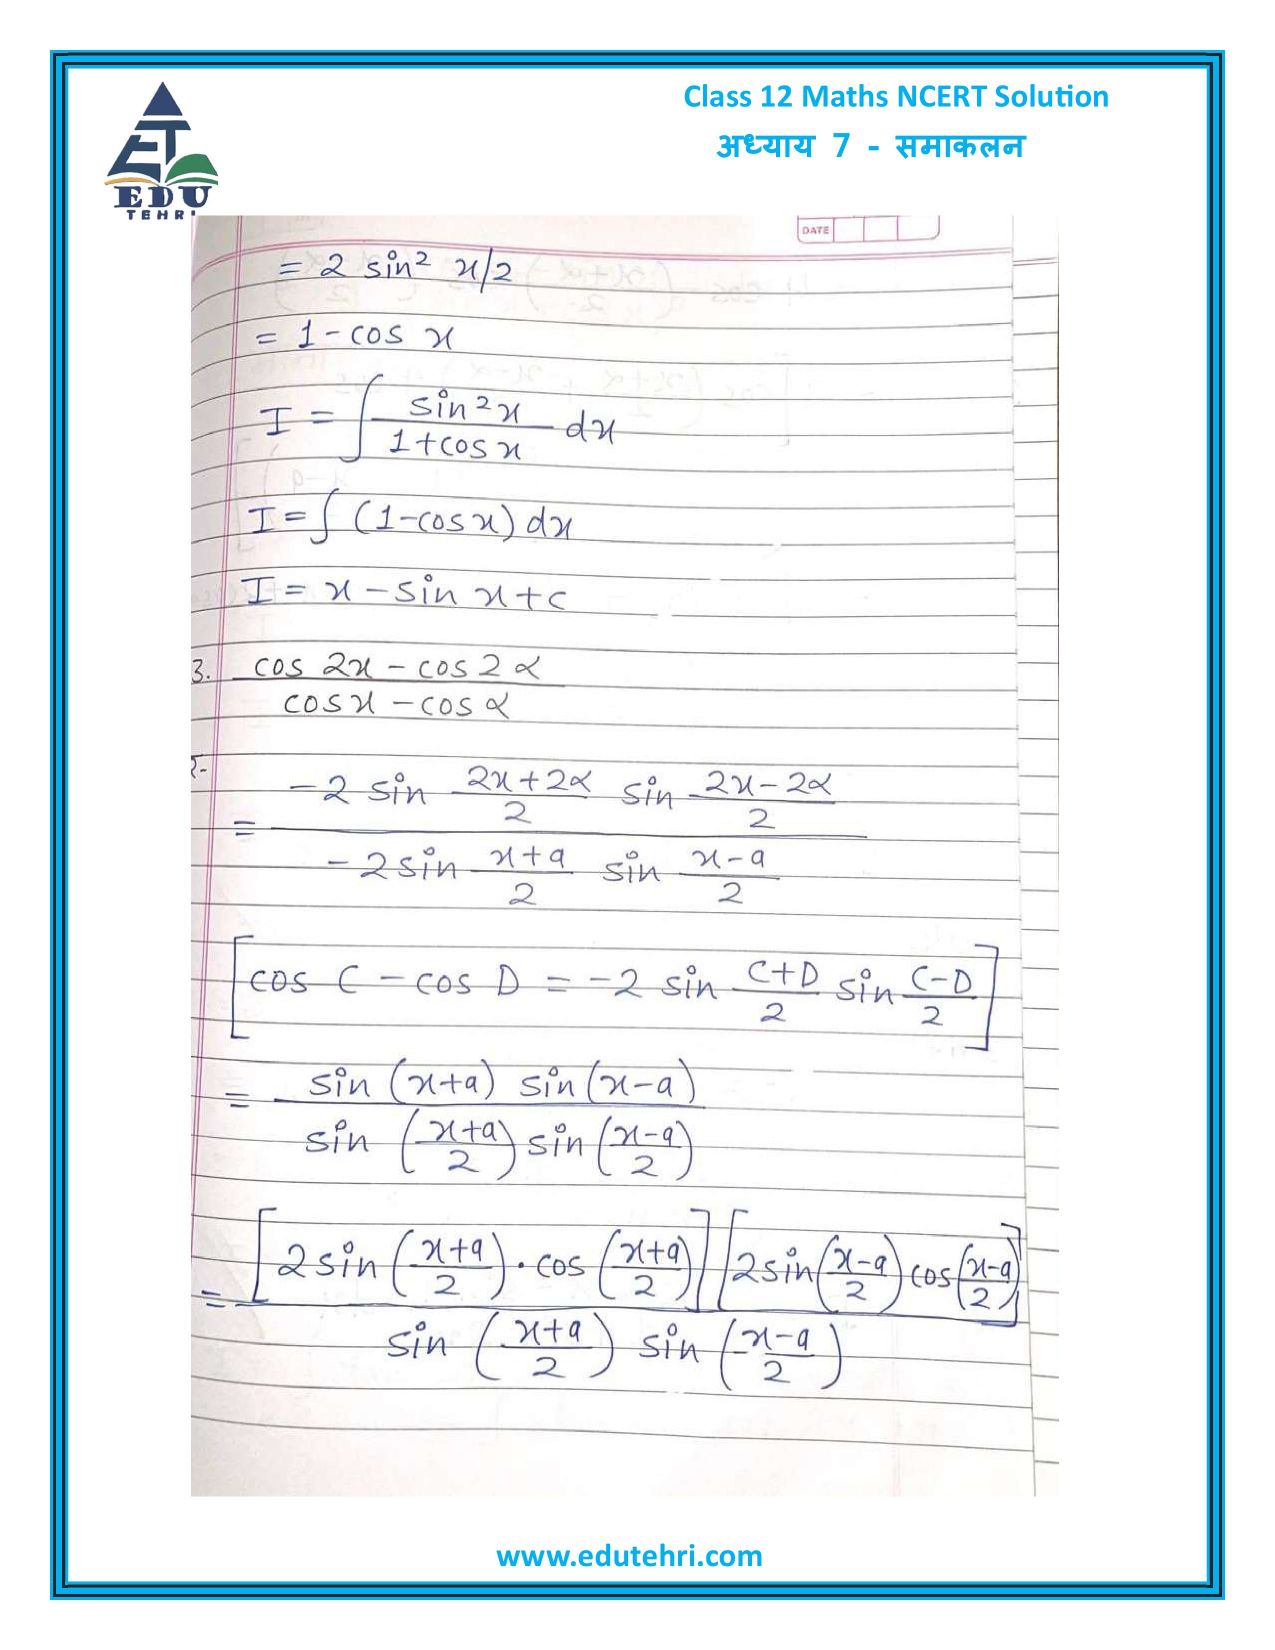 Class 12 Maths NCERT Solution
अध्याय 7 - समाकलन
EDU
TEHRI
DATE
= 2 sin² x/2
= 1 - cos x
I = ∫ sin²x / 1+cos x dx
I = ∫ (1-cos x) dx
I = x - sin x + c
3. cos 2x - cos 2α / cos x - cos α
= -2 sin 2x+2α/2 sin 2x-2α/2 / -2 sin x+a/2 sin x-a/2
[cos C - cos D = -2 sin C+D/2 sin C-D/2]
= sin (x+a) sin (x-a) / sin (x+a/2) sin (x-a/2)
= [2 sin (x+a/2) · cos (x+a/2)] [2 sin (x-a/2) cos (x-a/2)] / sin (x+a/2) sin (x-a/2)
www.edutehri.com